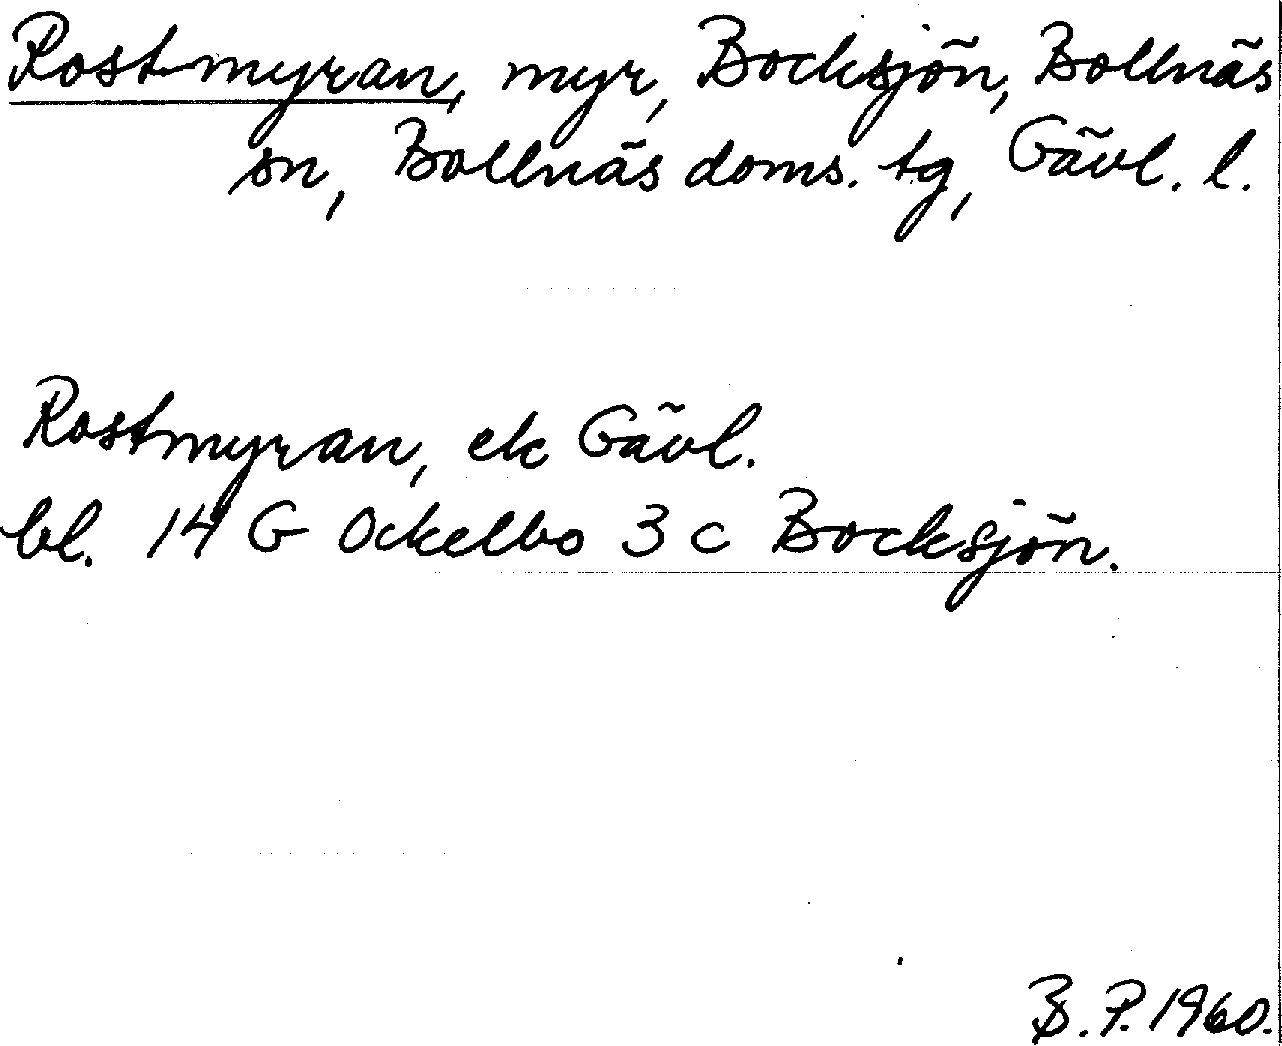 Rostmyran, myr, Bocksjön, Bollnäs
sn, Bollnäs doms. tg, Gävl. l.
Rostmyran, ek Gävl.
bl. 14 G Ockelbo 3 c Bocksjön.
B. P. 1960.